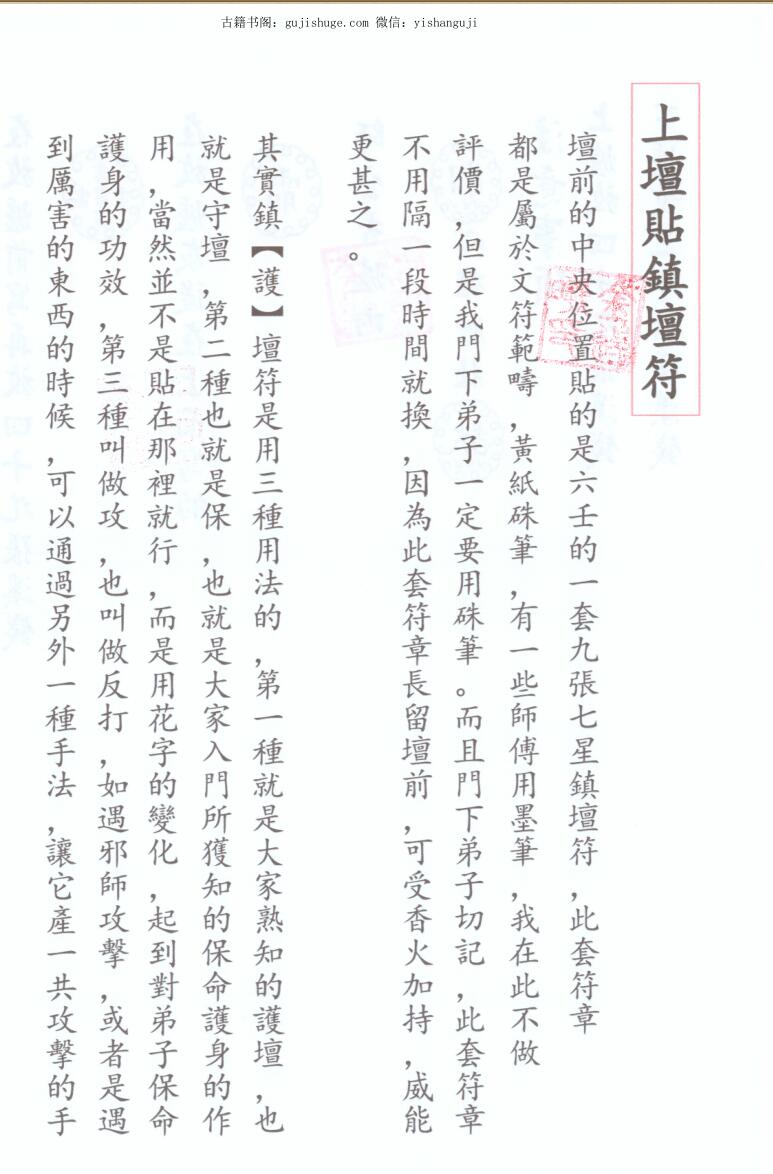 古籍书阁：gujishuge.com 微信：yishanguji
上壇貼鎮壇符
壇前的中央位置貼的是六壬的一套九張七星鎮壇符，此套符章
都是屬於文符範疇，黃紙硃筆，有一些師傅用墨筆，我在此不做
評價，但是我門下弟子一定要用硃筆。而且門下弟子切記，此套符章
不用隔一段時間就換，因為此套符章長留壇前，可受香火加持，威能
更甚之。
其實鎮【護】壇符是用三種用法的，第一種就是大家熟知的護壇，也
就是守壇，第二種也就是保，也就是大家入門所獲知的保命護身的作
用，當然並不是貼在那裡就行，而是用花字的變化，起到對弟子保命
護身的功效，第三種叫做攻，也叫做反打，如遇邪師攻擊，或者是遇
到厲害的東西的時候，可以通過另外一種手法，讓它產一共攻擊的手